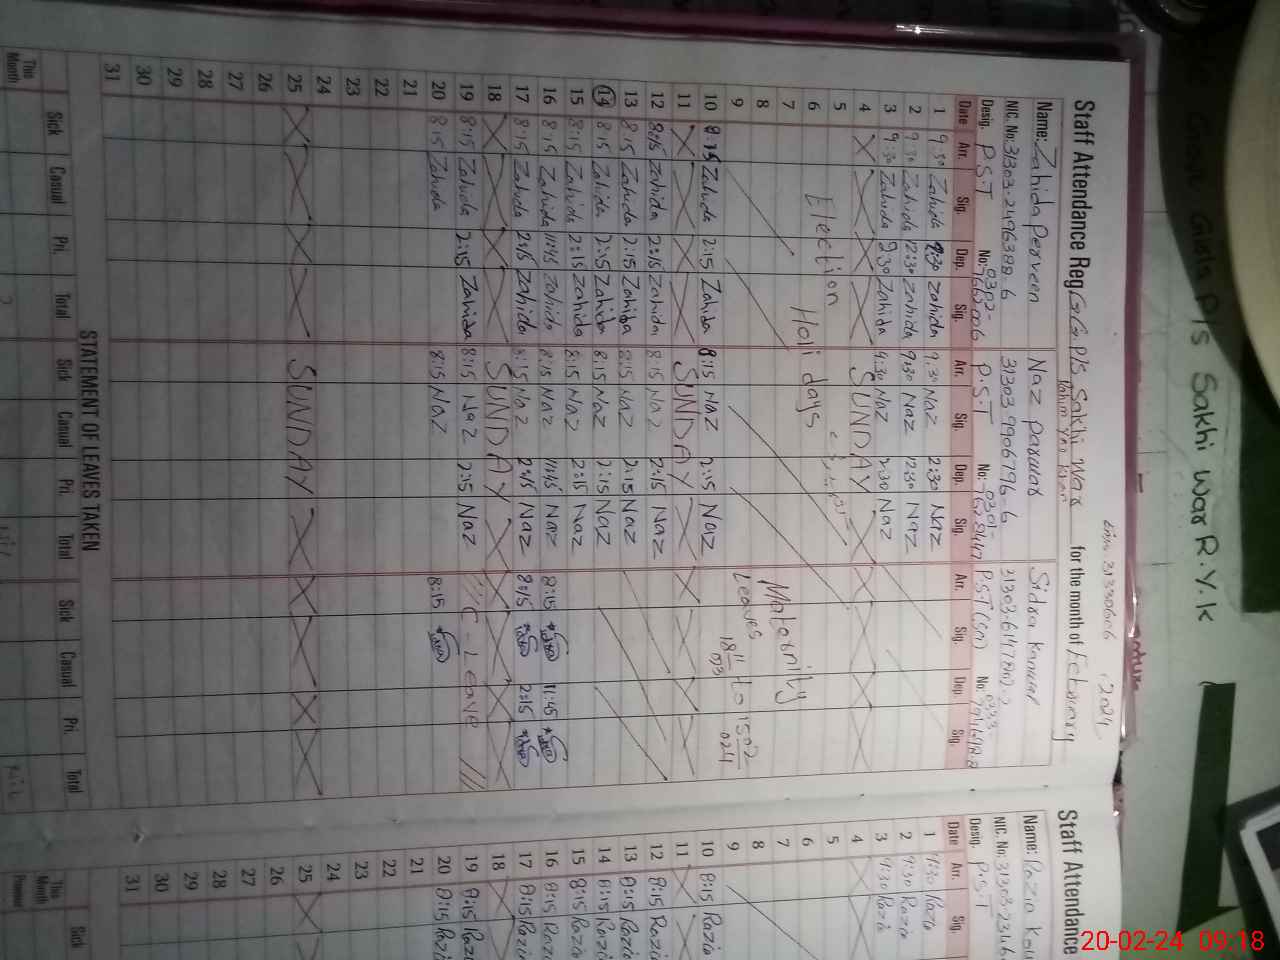 Staff Attendance Reg G.G. P/S Sakhi War for the month of February, 2024
Rahim Yar Khan
Name: Zahida Perveen Naz parwar Sidra Kanwal
NIC. No. 31303-2496388-6 31303-9906796-6
Desig. P.S.T No: P.S.T No: P.S.T No:
Date Arr. Sig. Dep. Sig. Arr. Sig. Dep. Sig. Arr. Sig. Dep. Sig.
1 9:30 Zahida 2:30 Zahida 9:30 Naz 2:30 Naz
2 9:30 Zahida 12:30 Zahida 9:30 Naz 12:30 Naz
3 9:30 Zahida 2:30 Zahida 9:30 Naz 2:30 Naz
4 SUNDAY
5
6 Election Holidays
7
8 Maternity
9 Leaves to
10 8:15 Zahida 2:15 Zahida 8:15 Naz 2:15 Naz
11 SUNDAY
12 8:15 Zahida 2:15 Zahida 8:15 Naz 2:15 Naz
13 8:15 Zahida 2:15 Zahida 8:15 Naz 2:15 Naz
14 8:15 Zahida 2:15 Zahida 8:15 Naz 2:15 Naz
15 8:15 Zahida 2:15 Zahida 8:15 Naz 2:15 Naz
16 8:15 Zahida 11:45 Zahida 8:15 Naz 11:45 Naz 8:15 11:45
17 8:15 Zahida 2:15 Zahida 8:15 Naz 2:15 Naz 8:15 2:15
18 SUNDAY
19 8:15 Zahida 2:15 Zahida 8:15 Naz 2:15 Naz C-Leave
20 8:15 Zahida 8:15 Naz 8:15
21
22
23
24
25 SUNDAY
26
27
28
29
30
31
STATEMENT OF LEAVES TAKEN
This Month Sick Casual Pri. Total Sick Casual Pri. Total Sick Casual Pri. Total
Staff Attendance
Name: Razia
NIC. No.
Desig. P.S.T
Date Arr. Sig.
1 9:30 Razia
2 9:30 Razia
3 9:30 Razia
4
5
6
7
8
9
10 8:15 Razia
11
12 8:15 Razia
13 8:15 Razia
14 8:15 Razia
15 8:15 Razia
16 8:15 Razia
17 8:15 Razia
18
19 8:15 Razia
20 8:15 Razia
21
22
23
24
25
26
27
28
29
30
31
This Month Sick
Girls P/S Sakhi War R.Y.K
20-02-24 09:18